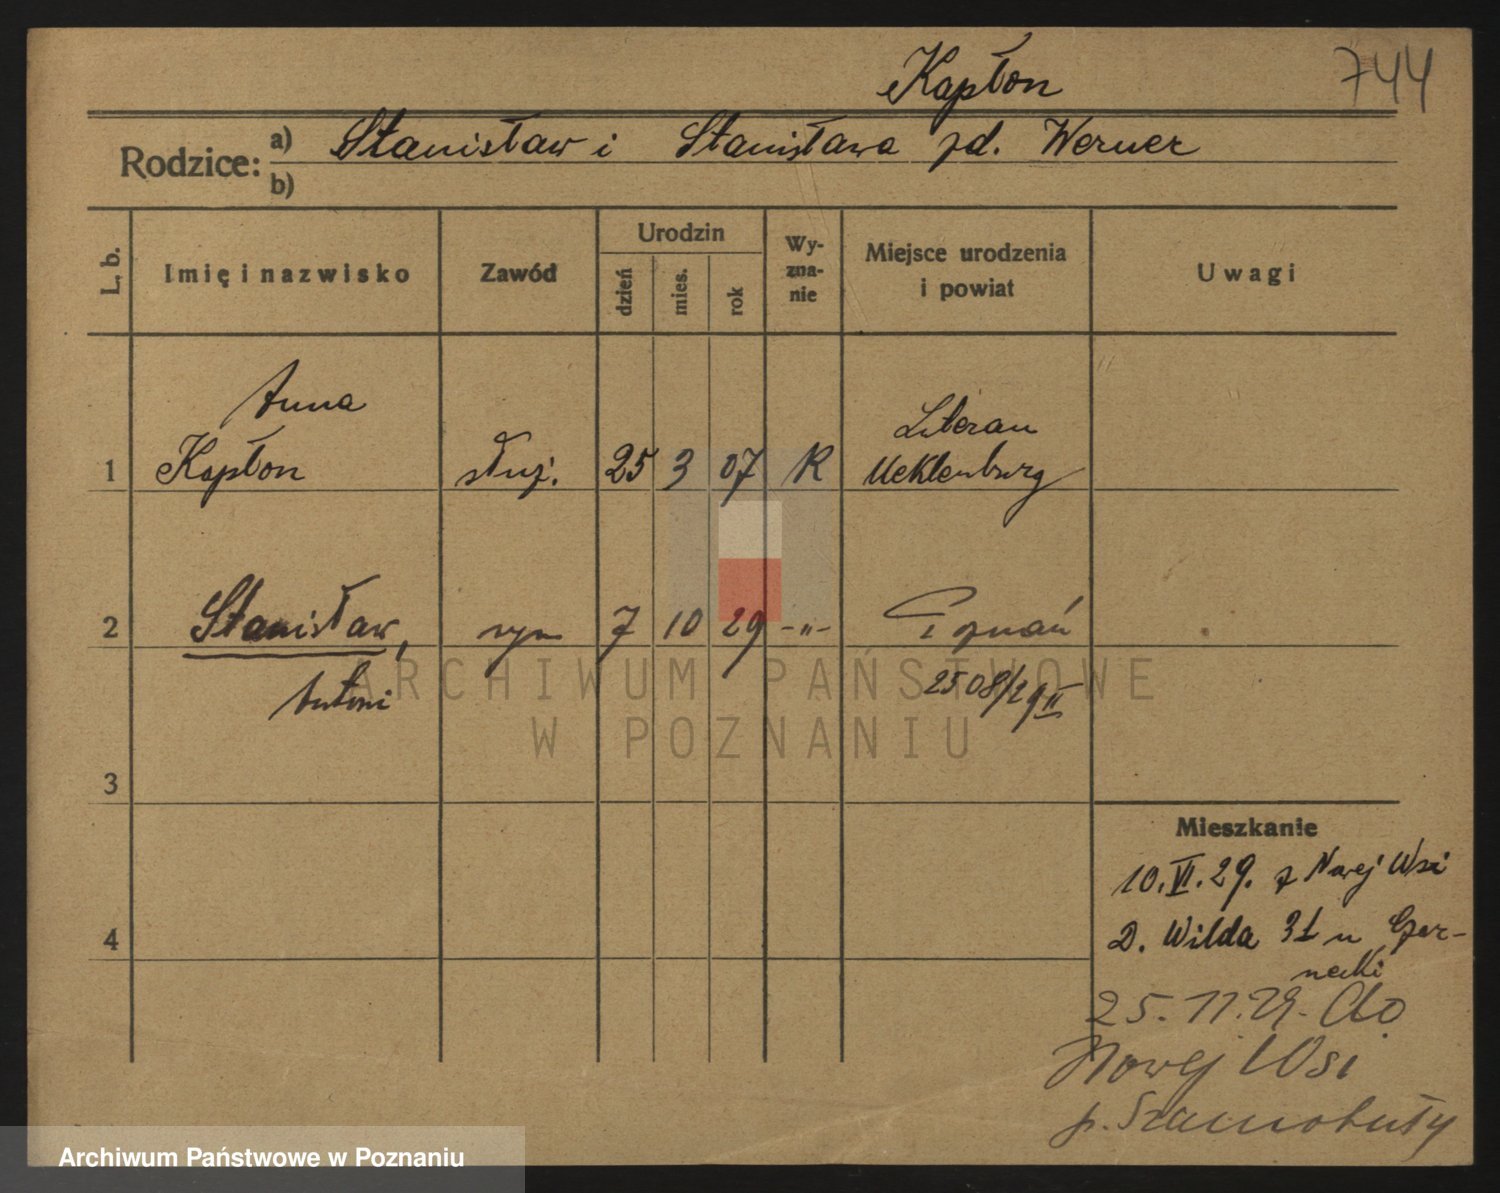 Kapłon 744
Rodzice: a) Stanisław i Stanisława zd. Werner
b)
L. b. Imię i nazwisko Zawód Urodzin dzień mies. rok Wyznanie Miejsce urodzenia i powiat Uwagi
Anna
1 Kapłon służ. 25 3 07 R Meklenburg
2 Stanisław, syn 7 10 29 -„- Poznań
Antoni 2508/29 II
3
4
Mieszkanie
10.VI.29. z Nowej Wsi
D. Wilda 31 u Czar-
necki
25.11.29. do
Nowej Wsi
p. Szamotuły
ARCHIWUM PAŃSTWOWE
W POZNANIU
Archiwum Państwowe w Poznaniu